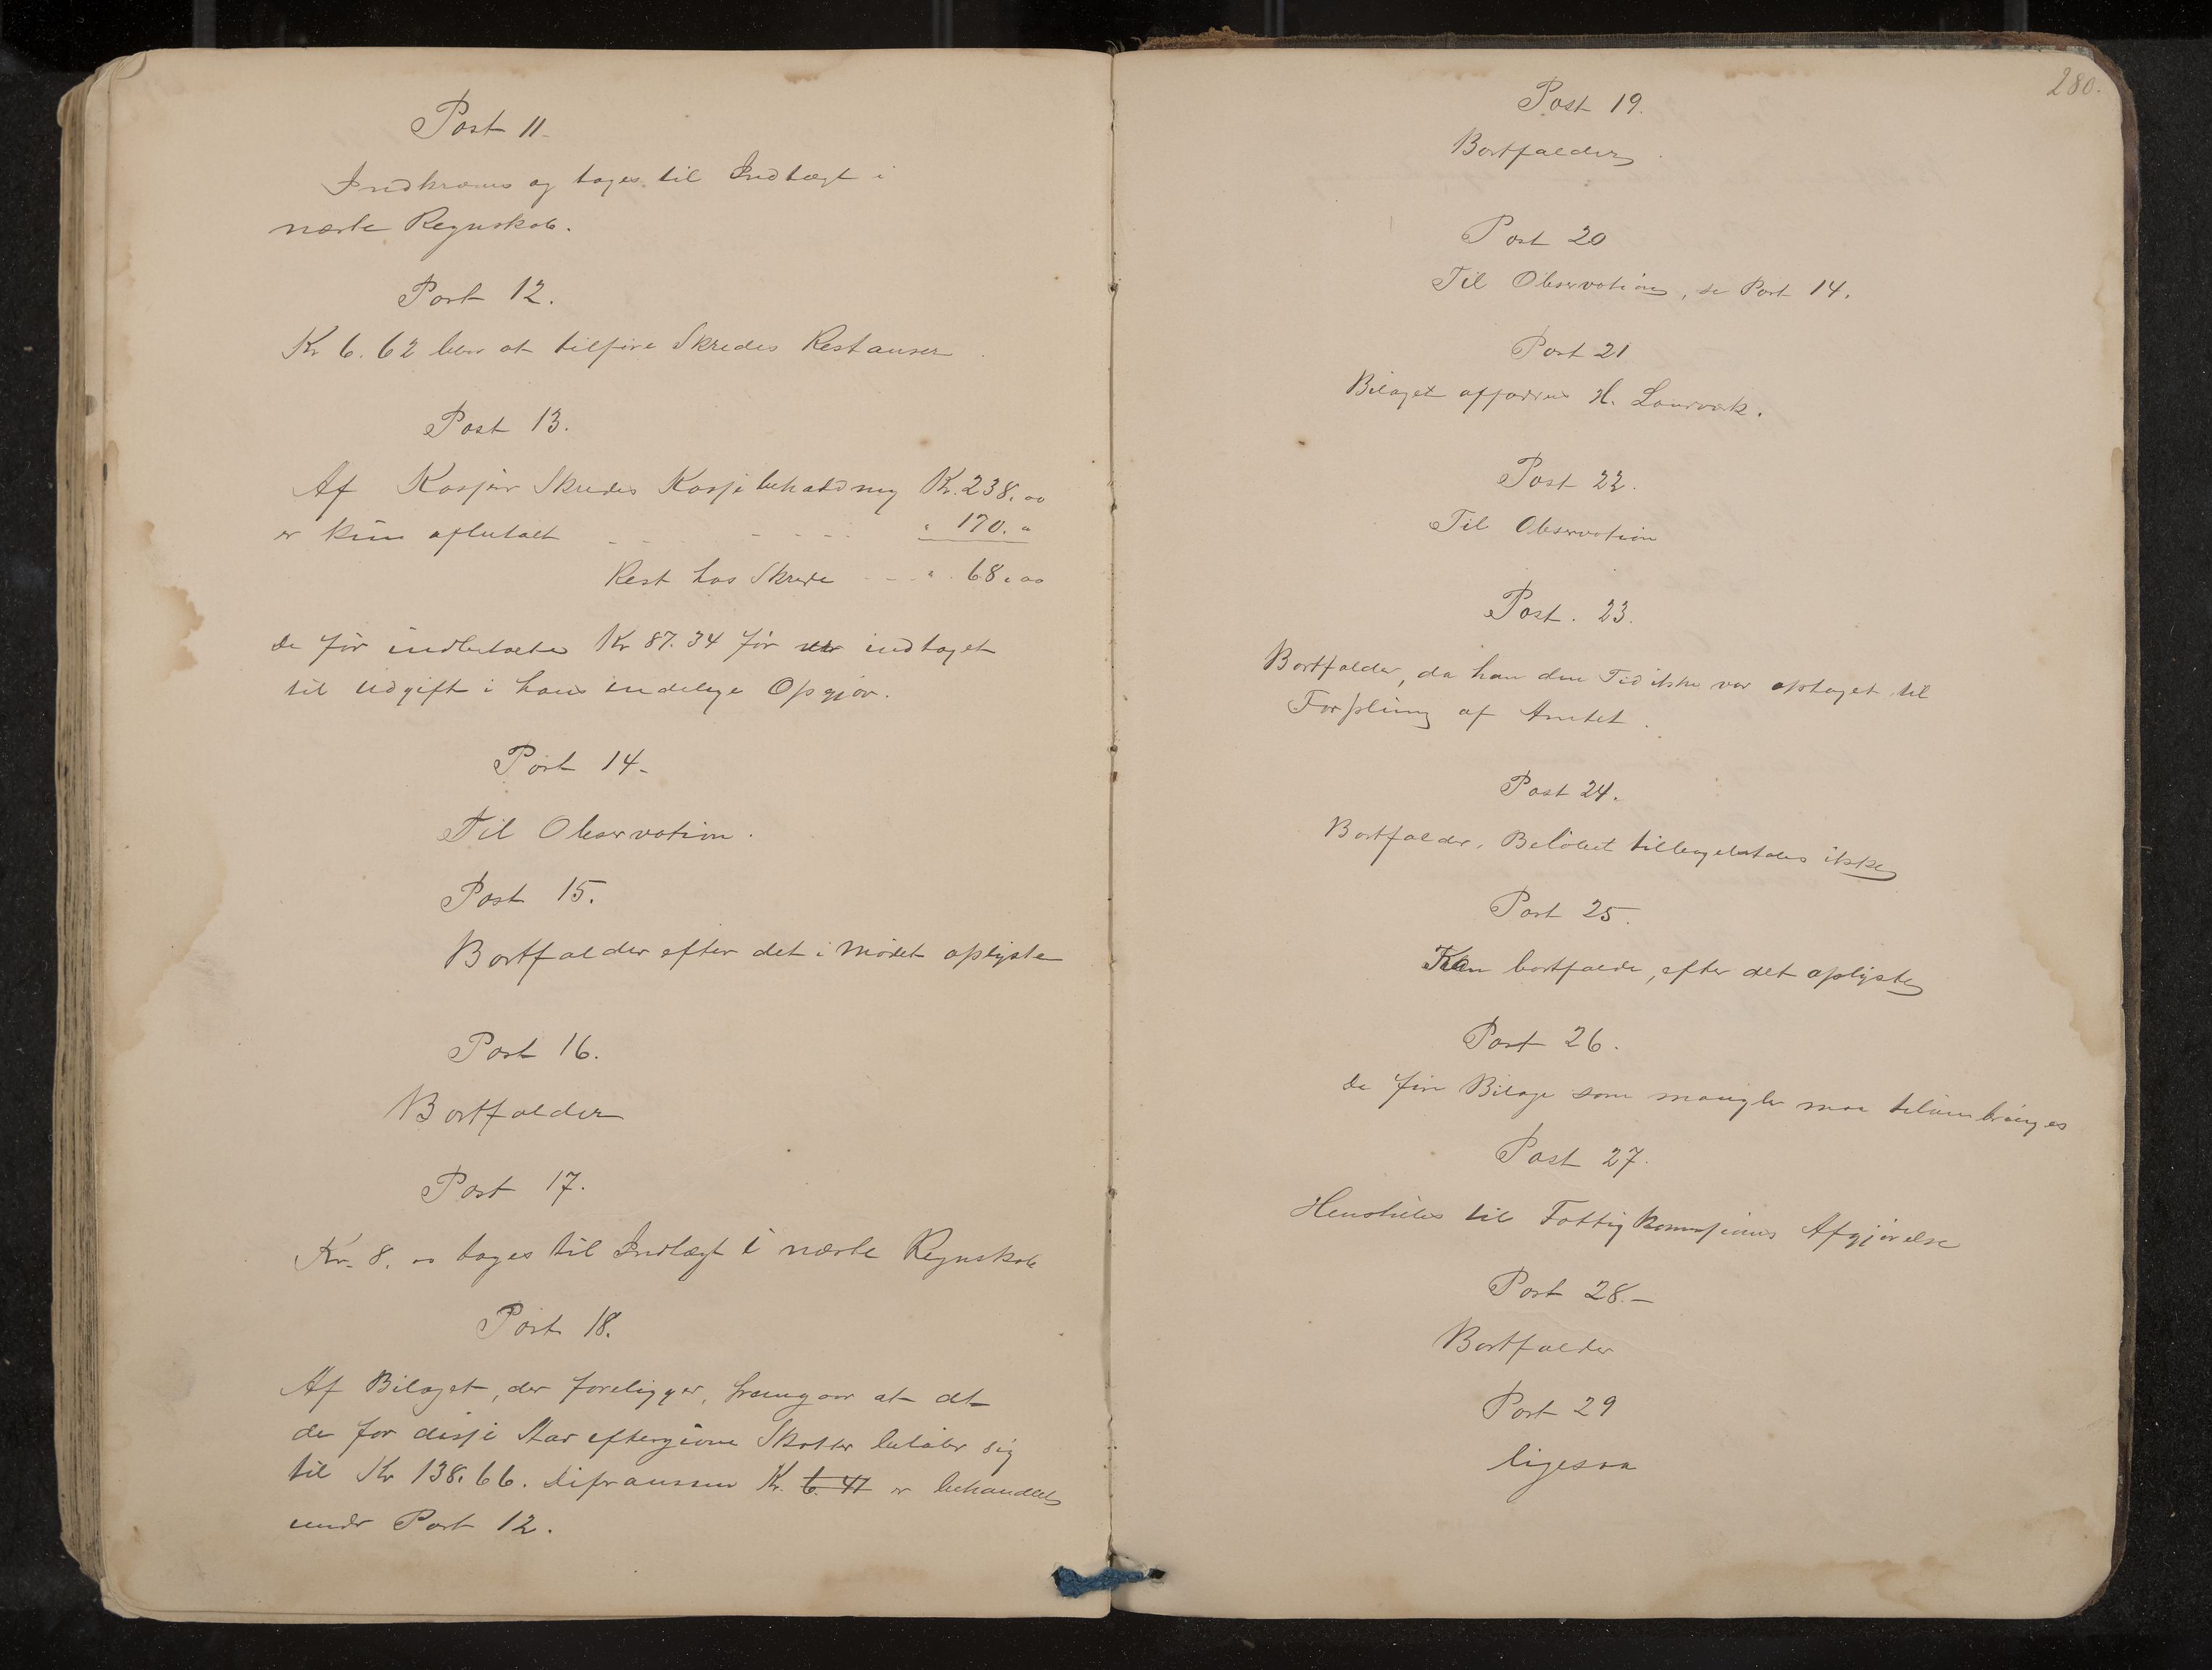 Post 11.
Indkræves og tages til Indtægt i
næste Regnskab.
Post 12.
Kr 6.62 bliver at tilføre Skredes Restanser
Post 13.
Af Kasjer Skredes Kassebeholdning Kr. 238.00
er kun afbetalt - - - - - - - " 170. "
Rest hos Skrede - - - " 68.00
De før indbetalte Kr 87.34 før indtaget
til Udgift i hans endelige Opgjør.
Post 14.
Til Observation.
Post 15.
Bortfalder efter det i Mødet oplyste
Post 16.
Bortfalder
Post 17.
Kr. 8.00 tages til Indtægt i næste Regnskab
Post 18.
Af Bilaget, der foreligger, fremgaar at det
de for disse Aar eftergivne Skatter beløber sig
til Kr 138.66. Differansen Kr. 6.41 er behandlet
under Post 12.
280.
Post 19.
Bortfalder
Post 20
Til Observation, se Post 14.
Post 21
Bilaget affordres H. Laurvæk.
Post 22.
Til Observation
Post. 23.
Bortfalder, da han den Tid ikke var optaget til
Forpleining af Amtet.
Post 24.
Bortfalder, Beløbet tilbagebetales ikke
Post 25.
Kan bortfalde, efter det oplyste
Post 26.
De fire Bilage som mangler maa tilveiebringes
Post 27.
Henstilles til Fattigkommissionens Afgjørelse
Post 28.-
Bortfalder
Post 29
ligesaa